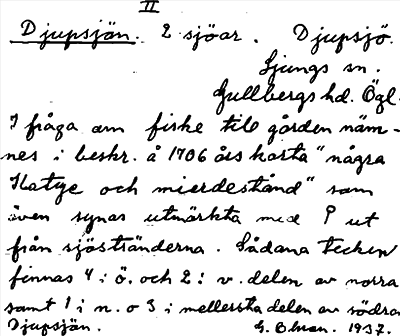 II
Djupsjön. 2 sjöar. Djupsjö.
Ljungs sn.
Gullbergs hd. Ögl.
I fråga om fiske till gården näm-
nes i beskr. å 1706 års karta "några
Katse och mierdestånd" som
även synas utmärkta med P ut
från sjöstränderna. Sådana tecken
finnas 4 i ö. och 2 i v. delen av norra
samt 1 i n. o 3 i mellersta delen av södra
Djupsjön. G. Ohson. 1937.